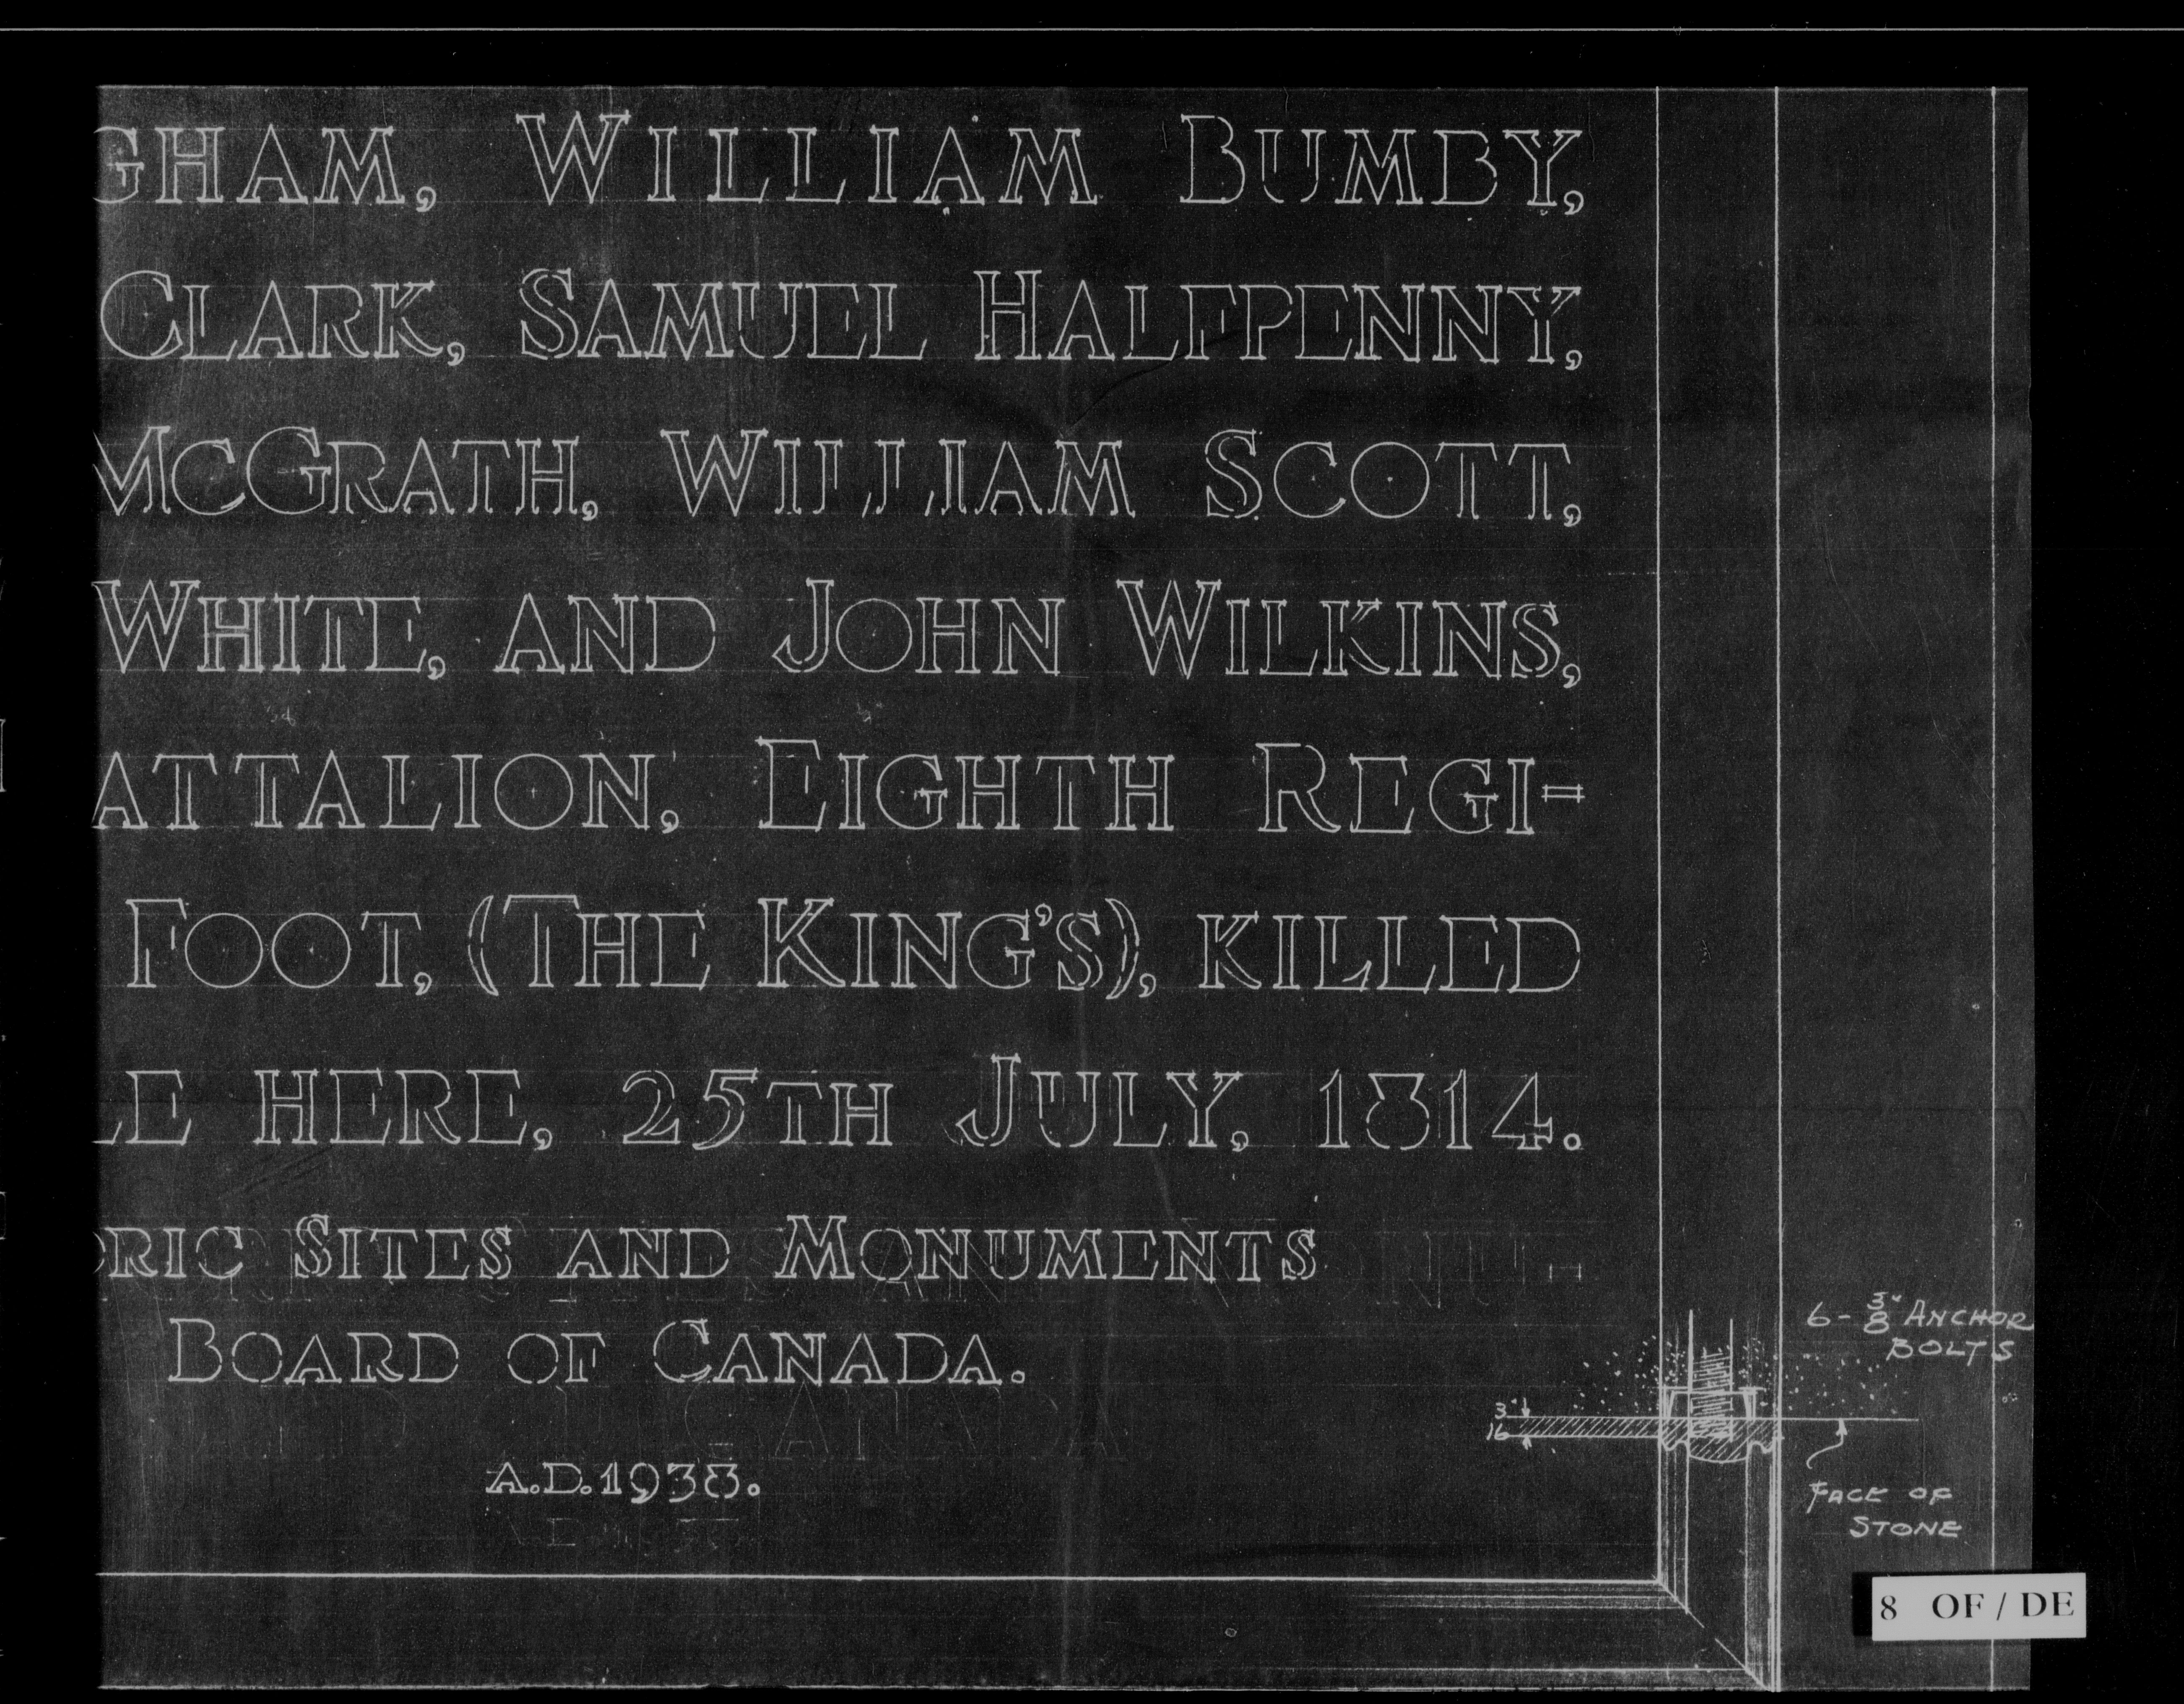 GHAM, WILLIAM BUMBY,
CLARK, SAMUEL HALFPENNY,
MCGRATH, WILLIAM SCOTT,
WHITE, AND JOHN WILKINS,
ATTALION, EIGHTH REGI=
FOOT, (THE KING'S), KILLED
LE HERE, 25TH JULY, 1814.
ORIC SITES AND MONUMENTS
BOARD OF CANADA.
A.D. 1938.
6 - 3/8" ANCHOR
BOLTS
3"
16
FACE OF
STONE
8 OF / DE